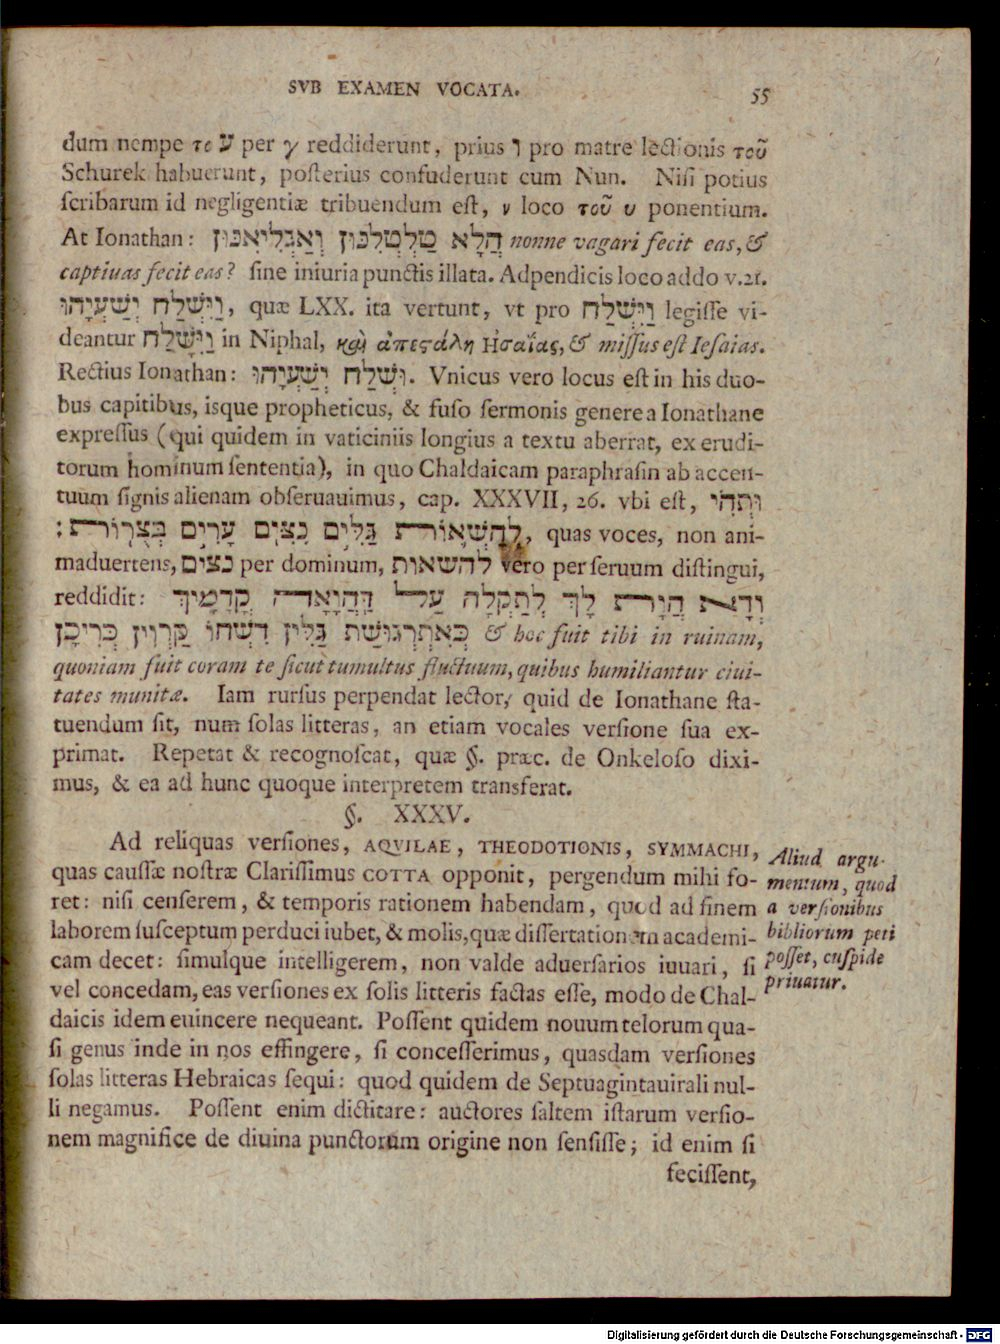 SVB EXAMEN VOCATA. 55
dum nempe το ע per γ reddiderunt, prius ו pro matre lectionis τοῦ
Schurek habuerunt, posterius confuderunt cum Nun. Nisi potius
scribarum id negligentiæ tribuendum est, ν loco τοῦ υ ponentium.
At Ionathan: הֲלָא טַלְטְלִנּוּן וְאַגְלִיאִנּוּן nonne vagari fecit eas, &
captiuas fecit eas? sine iniuria punctis illata. Adpendicis loco addo v. 21.
וַיִּשְׁלַח יְשַׁעְיָהוּ, quæ LXX. ita vertunt, vt pro וַיִּשְׁלַח legisse vi-
deantur וַיִּשָּׁלַח in Niphal, καὶ ἀπεϛάλη Ησαΐας, & missus est Iesaias.
Rectius Ionathan: וּשְׁלַח יְשַׁעְיָהוּ. Vnicus vero locus est in his duo-
bus capitibus, isque propheticus, & fuso sermonis genere a Ionathane
expressus (qui quidem in vaticiniis longius a textu aberrat, ex erudi-
torum hominum sententia), in quo Chaldaicam paraphrasin ab accen-
tuum signis alienam obseruauimus, cap. XXXVII, 26. vbi est, וּתְהִי
לְהַשְׁאוֹת גַּלִּים נִצִּים עָרִים בְּצֻרוֹת:, quas voces, non ani-
maduertens, נצים per dominum, להשאות vero per seruum distingui,
reddidit: וְדָא הֲוָת לָךְ לְתַקְלָה עַל דַּהֲוָאָה קֳדָמָיךְ
כְּאִתְרְגוּשַׁת גַּלִּין דִּשְׁחוֹ קִרְוִין כְּרִיכָן & hoc fuit tibi in ruinam,
quoniam fuit coram te sicut tumultus fluctuum, quibus humiliantur ciui-
tates munitæ. Iam rursus perpendat lector, quid de Ionathane sta-
tuendum sit, num solas litteras, an etiam vocales versione sua ex-
primat. Repetat & recognoscat, quæ §. præc. de Onkeloso dixi-
mus, & ea ad hunc quoque interpretem transferat.
§. XXXV.
Ad reliquas versiones, AQVILAE, THEODOTIONIS, SYMMACHI,
quas caussæ nostræ Clarissimus COTTA opponit, pergendum mihi fo-
ret: nisi censerem, & temporis rationem habendam, quod ad finem
laborem susceptum perduci iubet, & molis, quæ dissertationem academi-
cam decet: simulque intelligerem, non valde aduersarios iuuari, si
vel concedam, eas versiones ex solis litteris factas esse, modo de Chal-
daicis idem euincere nequeant. Possent quidem nouum telorum qua-
si genus inde in nos effingere, si concesserimus, quasdam versiones
solas litteras Hebraicas sequi: quod quidem de Septuagintauirali nul-
li negamus. Possent enim dictitare: auctores saltem istarum versio-
nem magnifice de diuina punctorum origine non sensisse; id enim si
fecissent,
Aliud argu-
mentum, quod
a versionibus
bibliorum peti
posset, cuspide
priuatur.
Digitalisierung gefördert durch die Deutsche Forschungsgemeinschaft - DFG